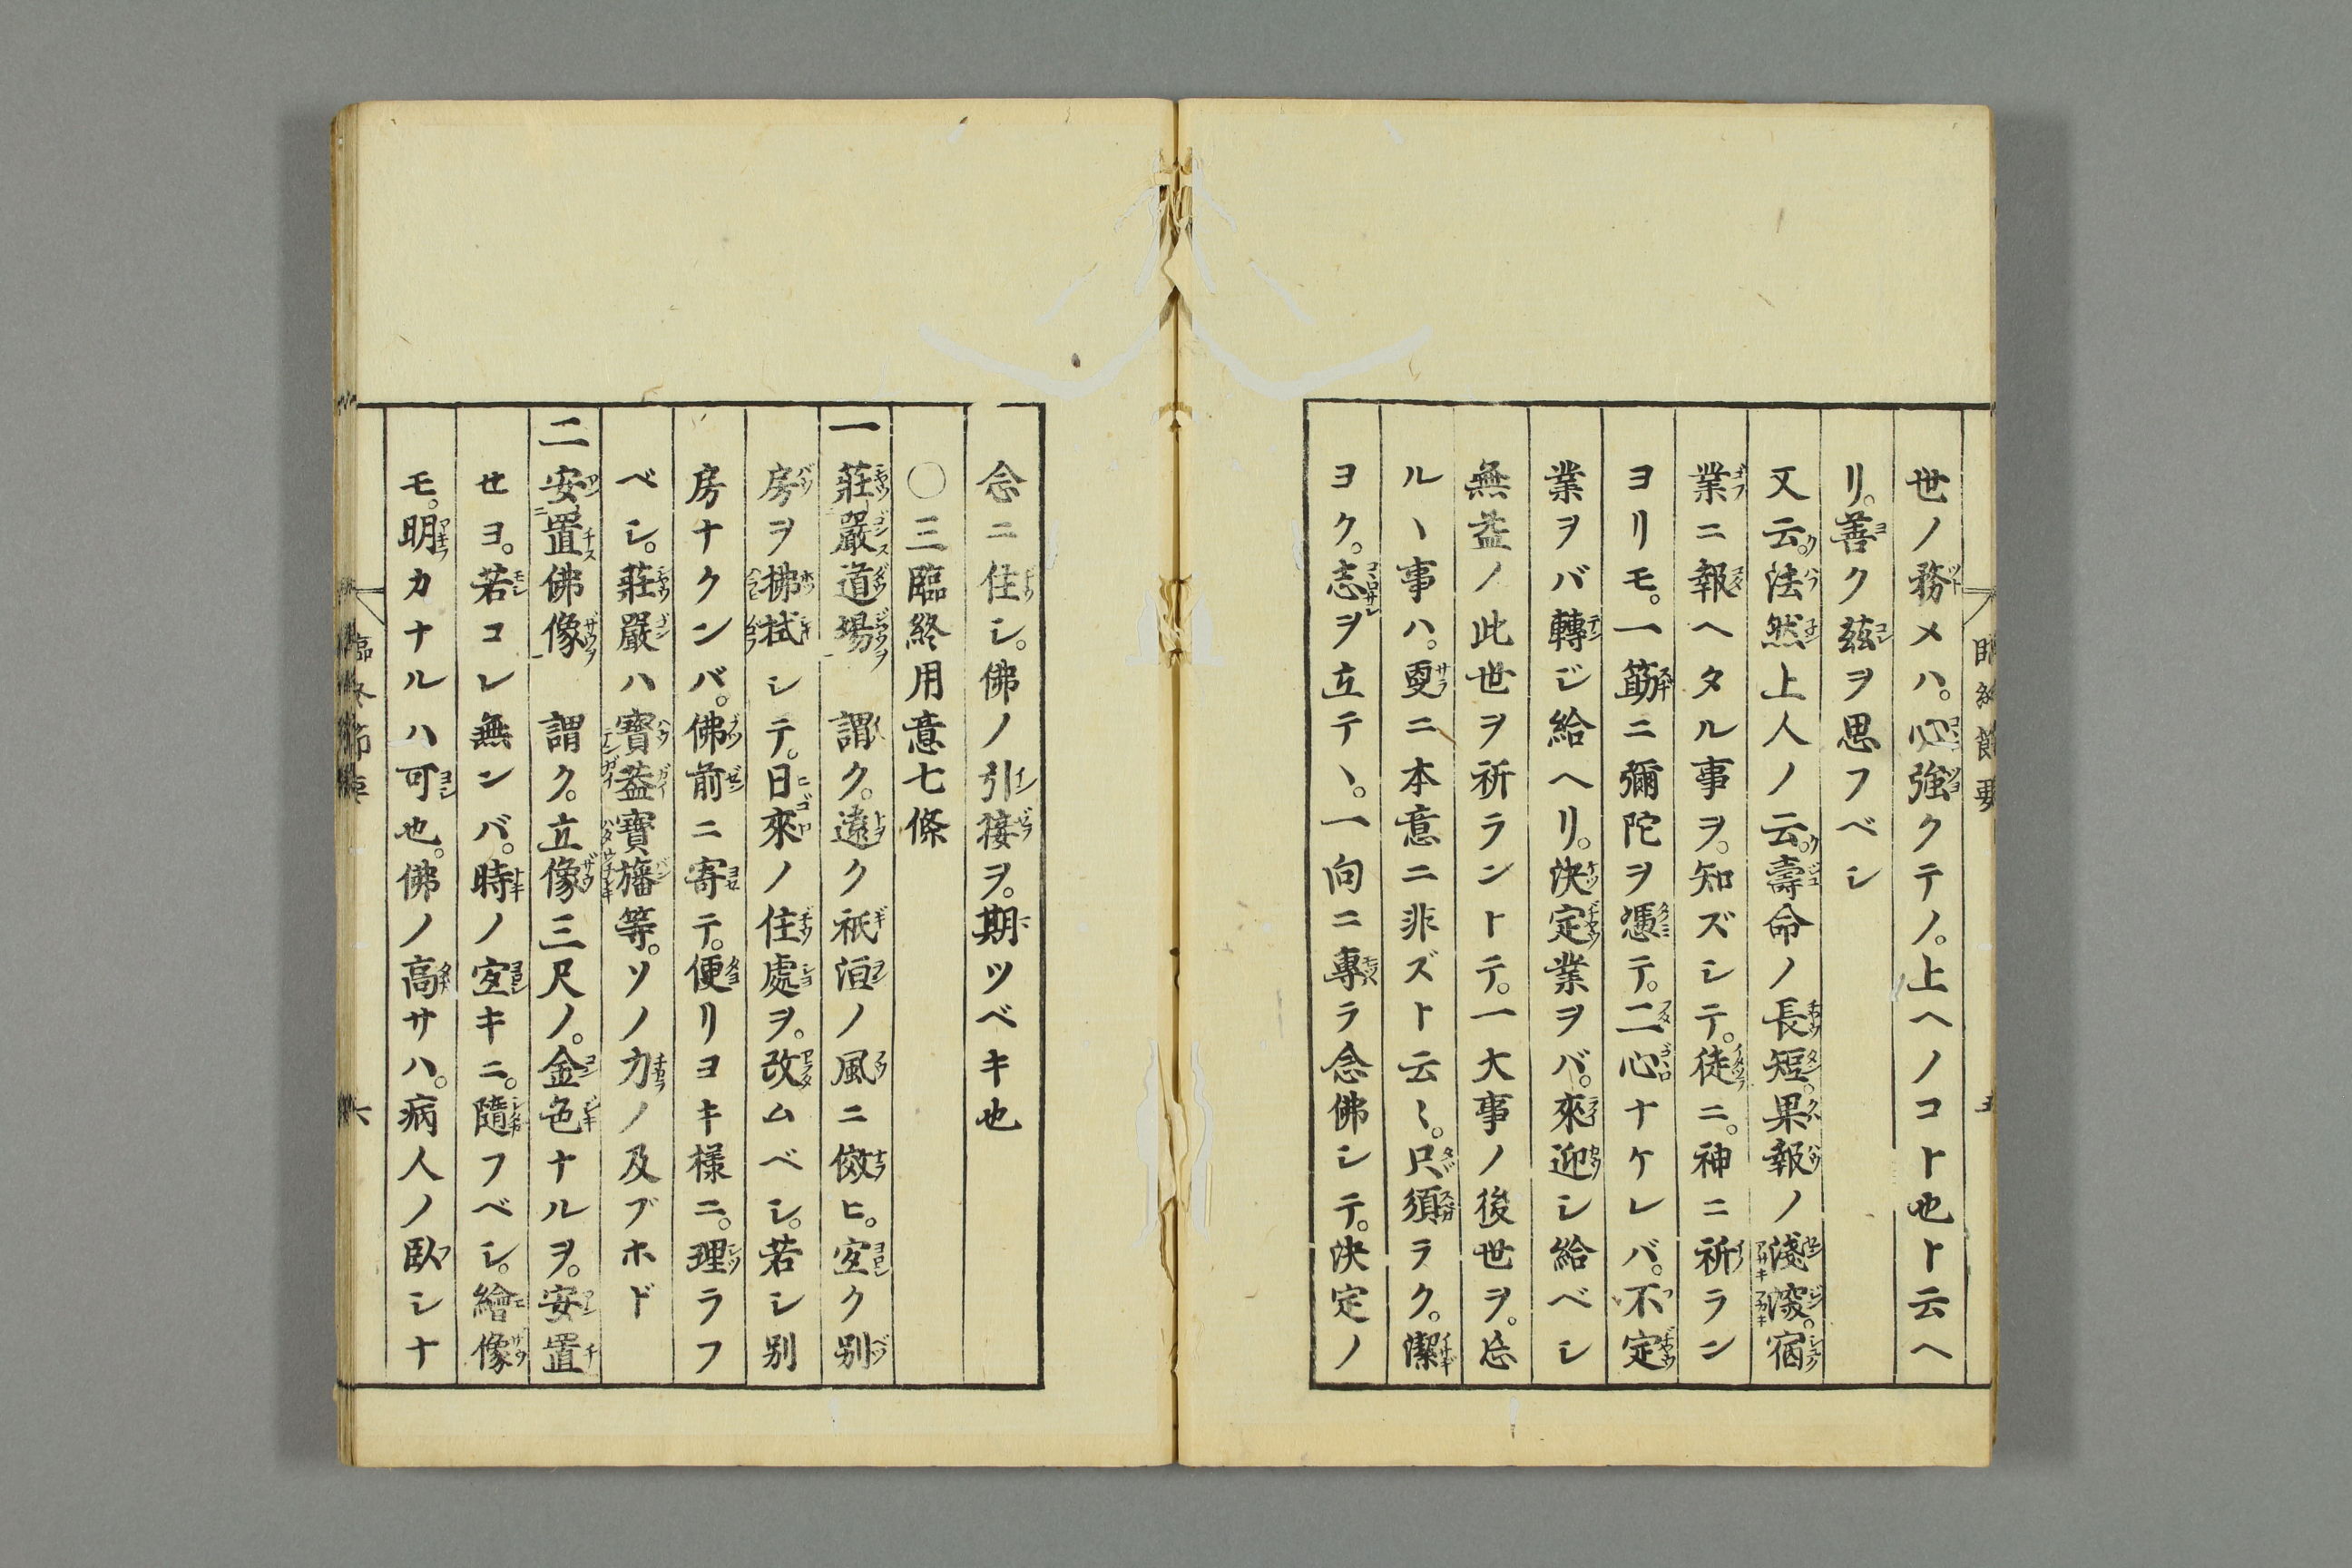 世ノ務メハ。心強クテノ。上ヘノコト也ト云ヘ
リ。善ク茲ヲ思フベシ
又云。法然上人ノ云。壽命ノ長短。果報ノ淺深。宿
業ニ報ヘタル事ヲ。知ズシテ。徒ニ。神ニ祈ラン
ヨリモ。一筋ニ彌陀ヲ憑テ。二心ナケレバ。不定
業ヲバ轉ジ給ヘリ。決定業ヲバ。來迎シ給ベシ
無益ノ此世ヲ祈ラントテ。一大事ノ後世ヲ。忘
ルヽ事ハ。更ニ本意ニ非ズト云〻。只須ラク。潔
ヨク。志ヲ立テヽ。一向ニ專ラ念佛シテ。決定ノ
念ニ住シ。佛ノ引接ヲ。期ツベキ也
〇三臨終用意七條
一莊嚴道場 謂ク。遠ク祇洹ノ風ニ傚ヒ。宜ク別
房ヲ拂拭シテ。日來ノ住處ヲ。改ムベシ。若シ別
房ナクンバ。佛前ニ寄テ。便リヨキ樣ニ。理ラフ
ベシ。莊嚴ハ寶蓋寶旛等。ソノ力ノ及ブホド
二安置佛像 謂ク。立像三尺ノ。金色ナルヲ。安置
セヨ。若コレ無ンバ。時ノ宜キニ。隨フベシ。繪像
モ。明カナルハ可也。佛ノ高サハ。病人ノ臥シナ
臨終節要 六